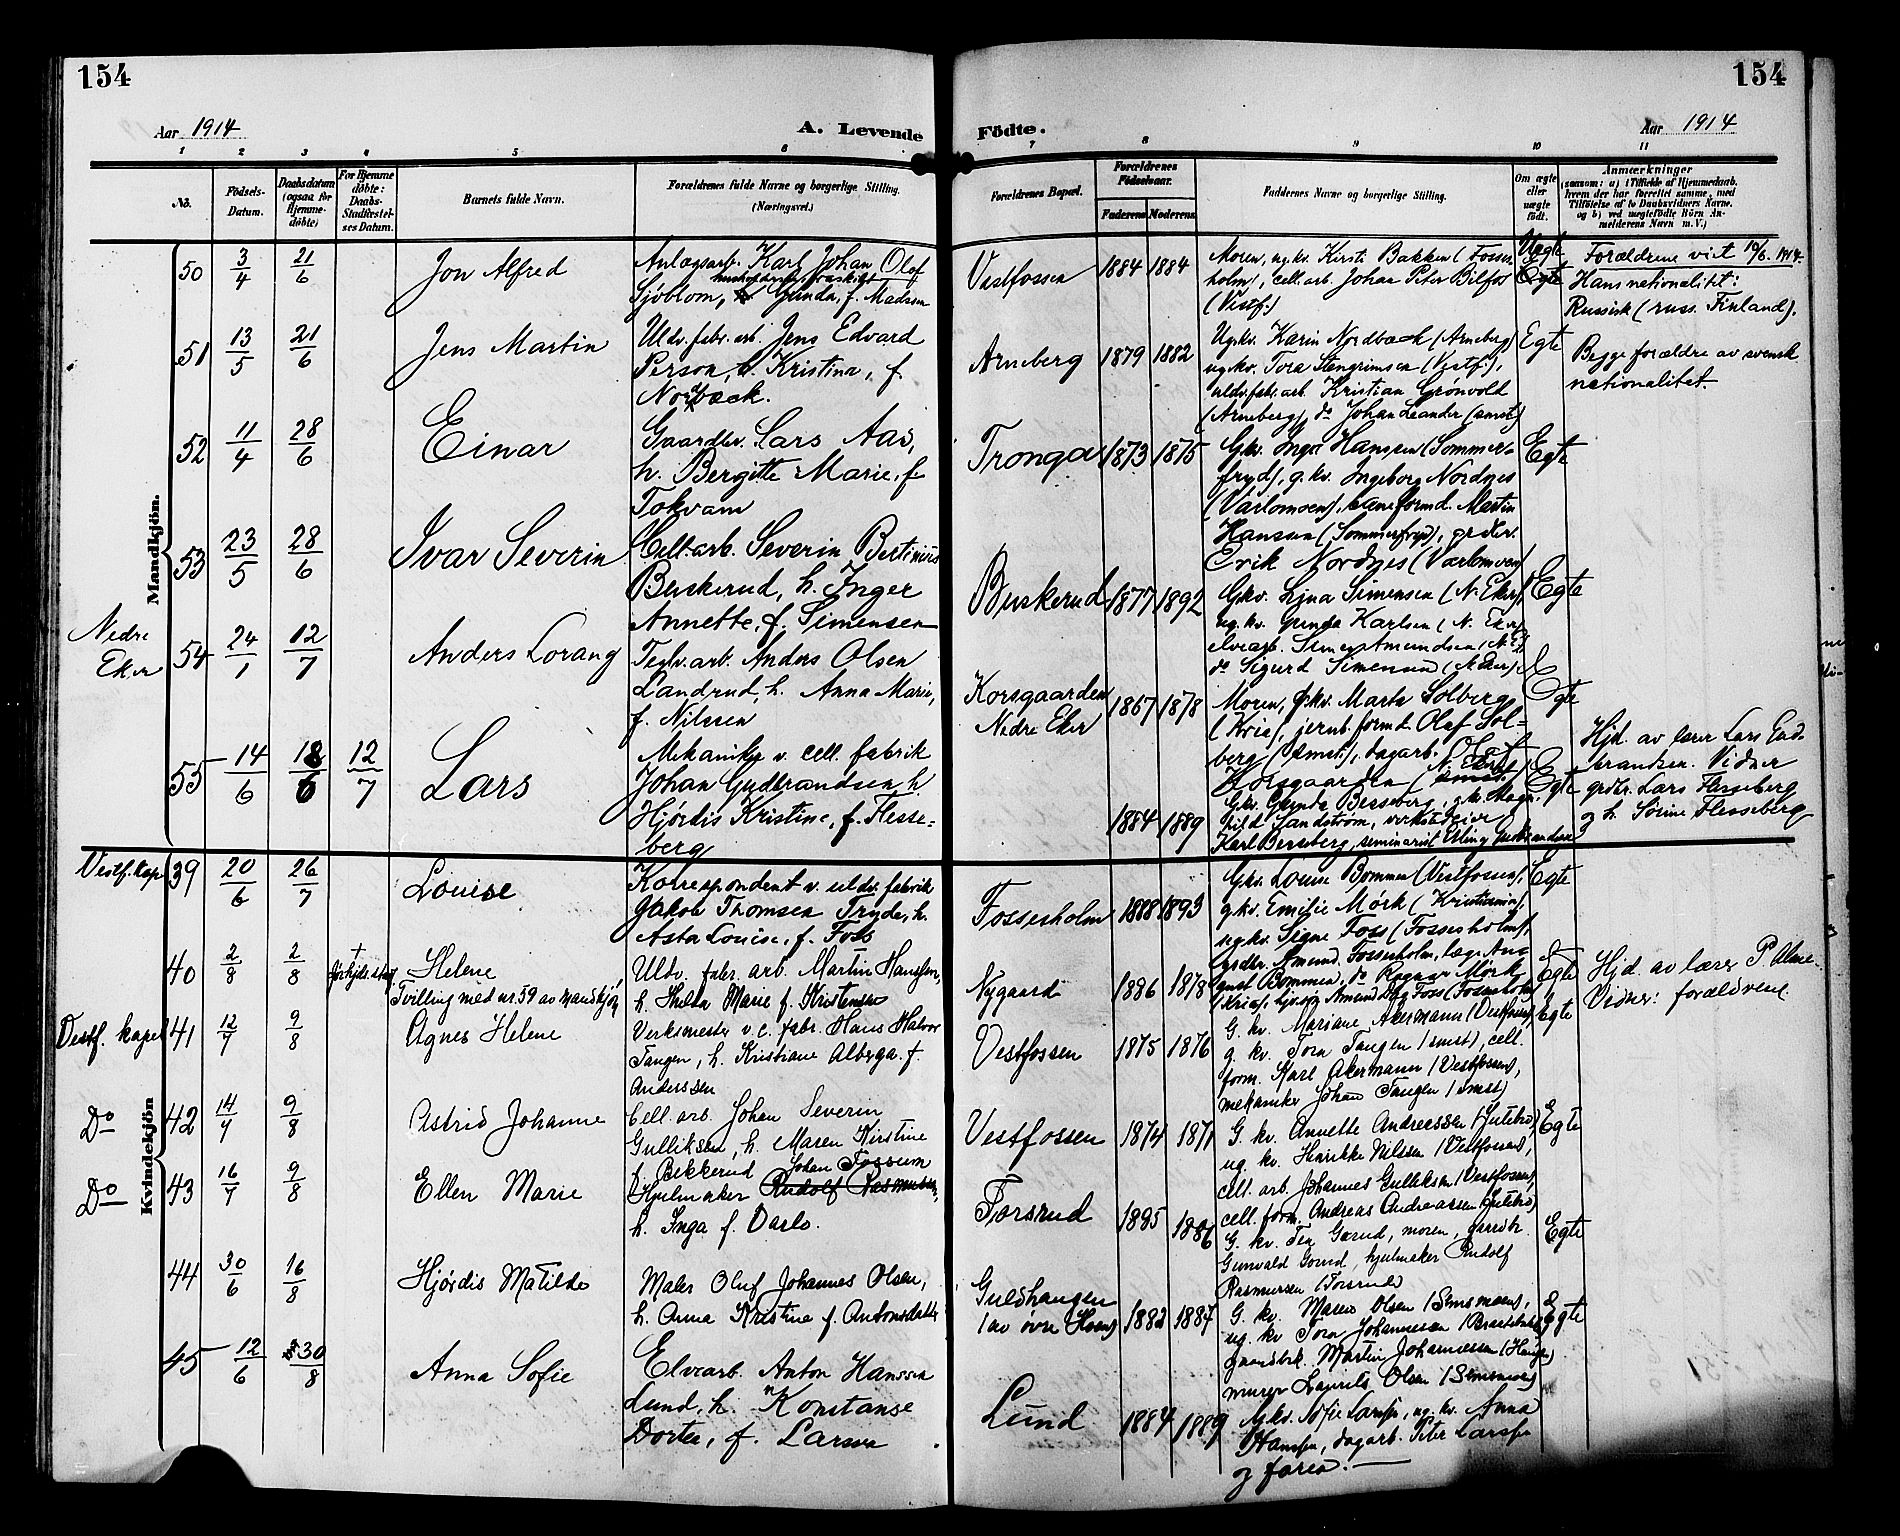 154
154
Aar 1914
A. Levende
Födte.
Aar 1914
1 2 3 4 5 6 7 8 9 10 11
No.
Födsels-
Datum.
Daabsdatum
(ogsaa for
Hjemme-
döbte)
For Hjemme
döbte:
Daabs-
Stadfæstel-
ses Datum.
Barnets fulde Navn.
Forældrenes fulde Navne og borgerlige Stilling.
(Næringsvei.)
Forældrenes Bopæl.
Forældrenes
Födselsaar.
Faderens
Moderens
Faddernes Navne og borgerlige Stilling.
Om ægte
eller
uægte
födt.
Anmærkninger
(saasom: a) i Tilfælde af Hjemmedaab,
hvem der har forrettet samme, med
Tilföielse af to Daabsvidners Navne,
og b) ved uegtefödte Börn An-
melderens Navn m. V.)
Mandkjön.
50
3/4
21/6
Jon Alfred
Anlægsarb. Karl Johan Olof
Sjöblom, Gunda, f. Madsen
Vestfossen
1884
1884
Moren, ug.kv. Kirsti Bakken (Fosses-
holm), cell.arb. Johan Peter Bilfos
(Vestf.)
Uegte
Egte
Forældrene viet 10/6. 1914.
Hans nationalitet:
Russisk (russ. Finland).
51
13/5
21/6
Jens Martin
Uldv.fabr.arb. Jens Edvard
Person, h. Kristina, f.
Nordback.
Arneberg
1879
1882
Ug.kv. Karin Nordback (Arneberg)
ug.kv. Tora Stengrimsen (Vestf.),
uldv.fabr.arb. Kristian Grönvold
(Arneberg), do Johan Leander (smst)
Egte
Begge forældre av svensk
nationalitet
52
11/4
28/6
Einar
Gaardbr. Lars Aas,
h. Bergitte Marie, f.
Tokvam
Tronga
1873
1875
G.kv. Inga Hanssen (Sommer-
fryd), g.kv. Ingeborg Nordnes
(Varlomoen), baneformd. Martin
Hanssen (Sommerfryd), grdbr.
Erik Nordnes (Varlomoen)
Egte
53
23/5
28/6
Ivar Severin
Cell.arb. Severin Bertinius
Buskerud, h. Inger
Annette, f. Simensen
Buskerud
1877
1892
G.kv. Lina Simensen (N. Eker)
ug.kv. Gunda Karlsen (N. Eker)
elvearb. Simen Amundsen (N.E),
do Sigurd Simensen (N.Eker).
Egte
Nedre
Eker
54
24/1
12/7
Anders Lorang
Teglv.arb. Anders Olsen
Landrud, h. Anna Marie,
f. Nilssen
Korsgaarden
Nedre Eker
1867
1878
Moren, g.kv. Marta Solberg
(Kria), jernb.formd. Olaf Sol-
berg (smst.), dagarb. Olaf
Korsgaarden (N. Eker)
Egte
55
14/6
12
7
Lars
Mekaniker v. cell. fabrik
Johan Gudbrandsen, h.
Hjørdis Kristine, f. Flesse-
berg
1884
1889
G.kv. Gunda Besseberg, g.kv. Magn-
hild Sandström, verkstedeier
Karl Besseberg, seminarist Erling Gudbrandsen
Egte
Hjd. av lærer Lars Gud-
brandsen. Vidner
grdbr. Lars Flesseberg
og h. Sørine Flesseberg
Kvindekjön
Vestf. kapel
39
20/6
26/7
Louise
Korrespondent v. uldv. fabrik
Jakob Thomsen Tryde, h.
Asta Louise, f. Foss
Fossesholm
1888
1893
G.kv. Louise Bommen (Vestfossen),
g.kv. Emilie Mörk (Kristiania),
ug.kv. Signe Foss (Fossesholm),
grdbr. Amund Fossesholm, læge Aug
ust Bommen, do Ragnar Mörk
(Kria), Amund Foss (Fossesholm)
Egte
40
2/8
2/8
Helene
Tvilling med nr. 59 av mandkjøn
Uldv. fabr. arb. Martin Hansen,
h. Hilda Marie f. Kristensen
Nygaard
1886
1878
Egte
Hjd. av lærer P. Ulme.
Vidner: forældrene
Vestf. kapel
41
12/7
9/8
Agnes Helene
Verksmester v. c. fabr. Hans Halvor
Tangen, h. Kristiane Alberga. f.
Anderssen
Vestfossen
1875
1876
G. kv. Mariane Akermann (Vestfossen),
g. kv. Tora Tangen (smst), cell.
form. Karl Akermann (Vestfossen),
mekaniker Johan Tangen (smst)
Egte
Do
42
14/7
9/8
Astrid Johanne
Cell. arb. Johan Severin
Gulliksen, h. Maren Kirstine
f. Bekkerud
Vestfossen
1874
1871
G. kv. Annette Andreassen (Jutebro)
ug. kv. Henrikke Nilssen (Vestfossen),
cell. arb. Johannes Gulliksen (Vestfossen),
cell. form. Andreas Andreassen (Jutebro)
Egte
Do
43
16/7
9/8
Ellen Marie
Johan Fossum
Hjulmaker Rudolf Rasmussen,
h. Inga f. Varlo.
Forsrud
1895
1886
G. kv. Tea Gorud, moren, gaardbr.
Gunvald Gorud, hjulmaker Rudolf
Rasmussen (Forsrud)
Egte
44
30/6
16/8
Hjørdis Matilde
Maler Oluf Johannes Olsen,
h. Anna Kristine f. Antonsdatter
Guldhaugen
(av øvre Hoen)
1882
1887
G. kv. Maren Olsen (Semsmoen),
ug. kv Tora Johannesen
gaardbr. Martin Johannessen (Haugen)
murer Laurits Olsen (Semsmoen)
Egte
45
12/6
30/8
Anna Sofie
Elvearb. Anton Hanssen
Lund, h. Konstanse
Dortea, f. Larsen
Lund
1884
1889
G.kv. Sofie Larssen, ug. kv. Anna
Hanssen, dagarb. Peter Larssen
og faren.